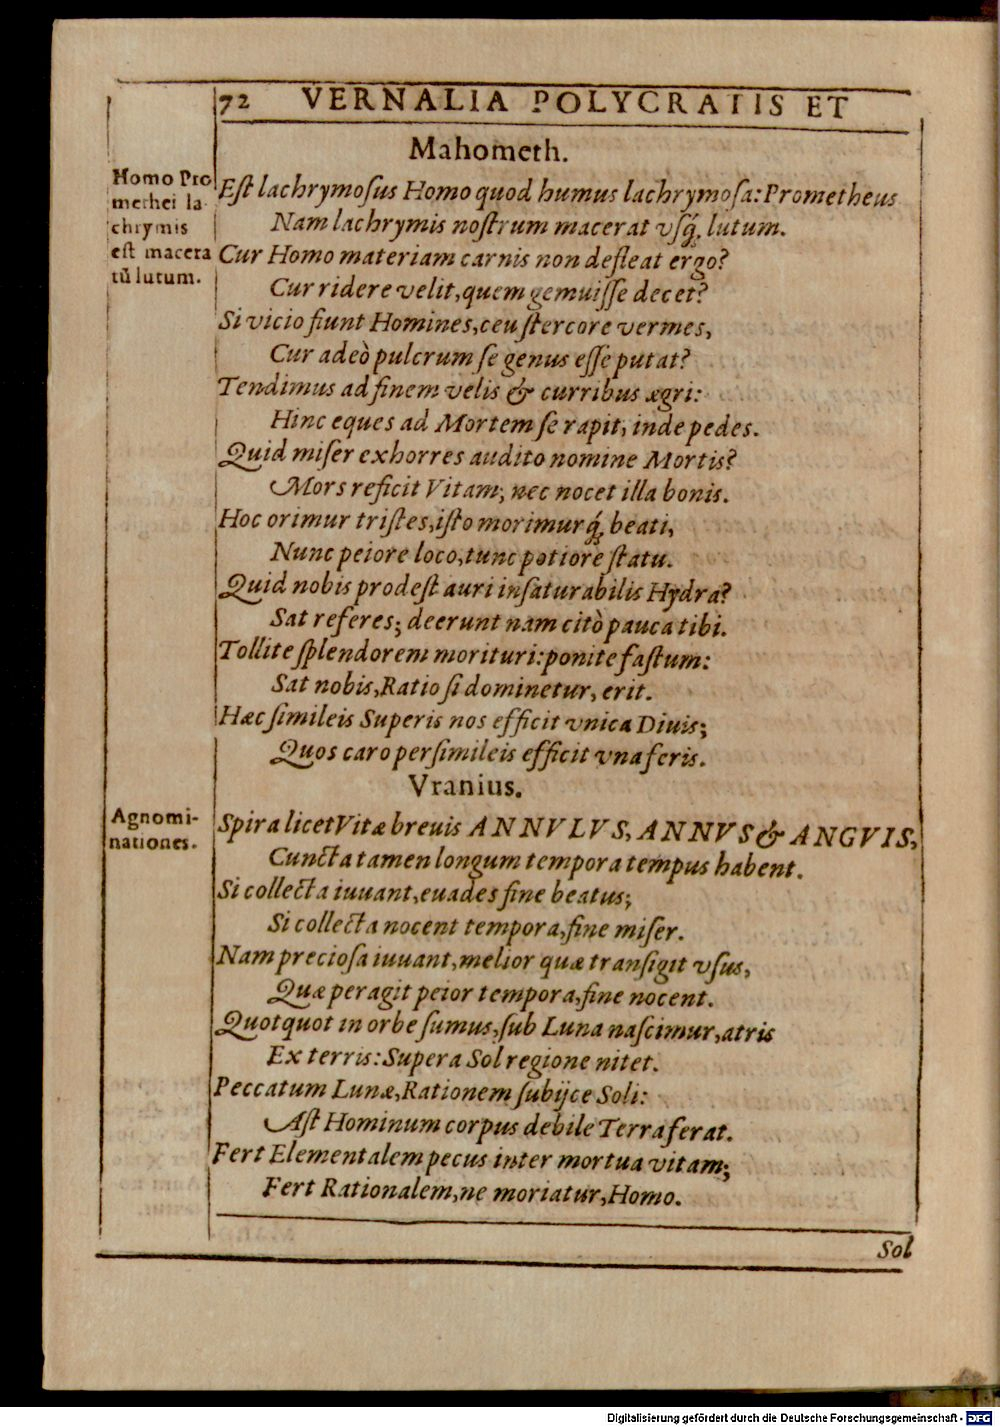 72 VERNALIA POLYCRATIS ET
Mahometh.
Homo Pro
methei la
chrymis
est macera
tũ lutum.
Est lachrymosus Homo quod humus lachrymosa: Prometheus
Nam lachrymis nostrum macerat vsq́, lutum.
Cur Homo materiam carnis non defleat ergo?
Cur ridere velit, quem gemuisse decet?
Si vicio fiunt Homines, ceu stercore vermes,
Cur adeò pulcrum se genus esse putat?
Tendimus ad finem velis & curribus ægri:
Hinc eques ad Mortem se rapit, inde pedes.
Quid miser exhorres audito nomine Mortis?
Mors reficit Vitam; nec nocet illa bonis.
Hoc orimur tristes, isto morimurq́, beati,
Nunc peiore loco, tunc potiore statu.
Quid nobis prodest auri insaturabilis Hydra?
Sat referes; deerunt nam citò pauca tibi.
Tollite splendorem morituri: ponite fastum:
Sat nobis, Ratio si dominetur, erit.
Hæc simileis Superis nos efficit vnica Diuis;
Quos caro persimileis efficit vna feris.
Vranius.
Agnomi-
nationes.
Spira licet Vitæ breuis ANNVLVS, ANNVS & ANGVIS,
Cuncta tamen longum tempora tempus habent.
Si collecta iuuant, euades fine beatus;
Si collecta nocent tempora, fine miser.
Nam preciosa iuuant, melior quæ transigit vsus,
Quæ peragit peior tempora, fine nocent.
Quotquot in orbe sumus, sub Luna nascimur, atris
Ex terris: Supera Sol regione nitet.
Peccatum Lunæ, Rationem subijce Soli:
Ast Hominum corpus debile Terra ferat.
Fert Elementalem pecus inter mortua vitam;
Fert Rationalem, ne moriatur, Homo.
Sol
Digitalisierung gefördert durch die Deutsche Forschungsgemeinschaft - DFG